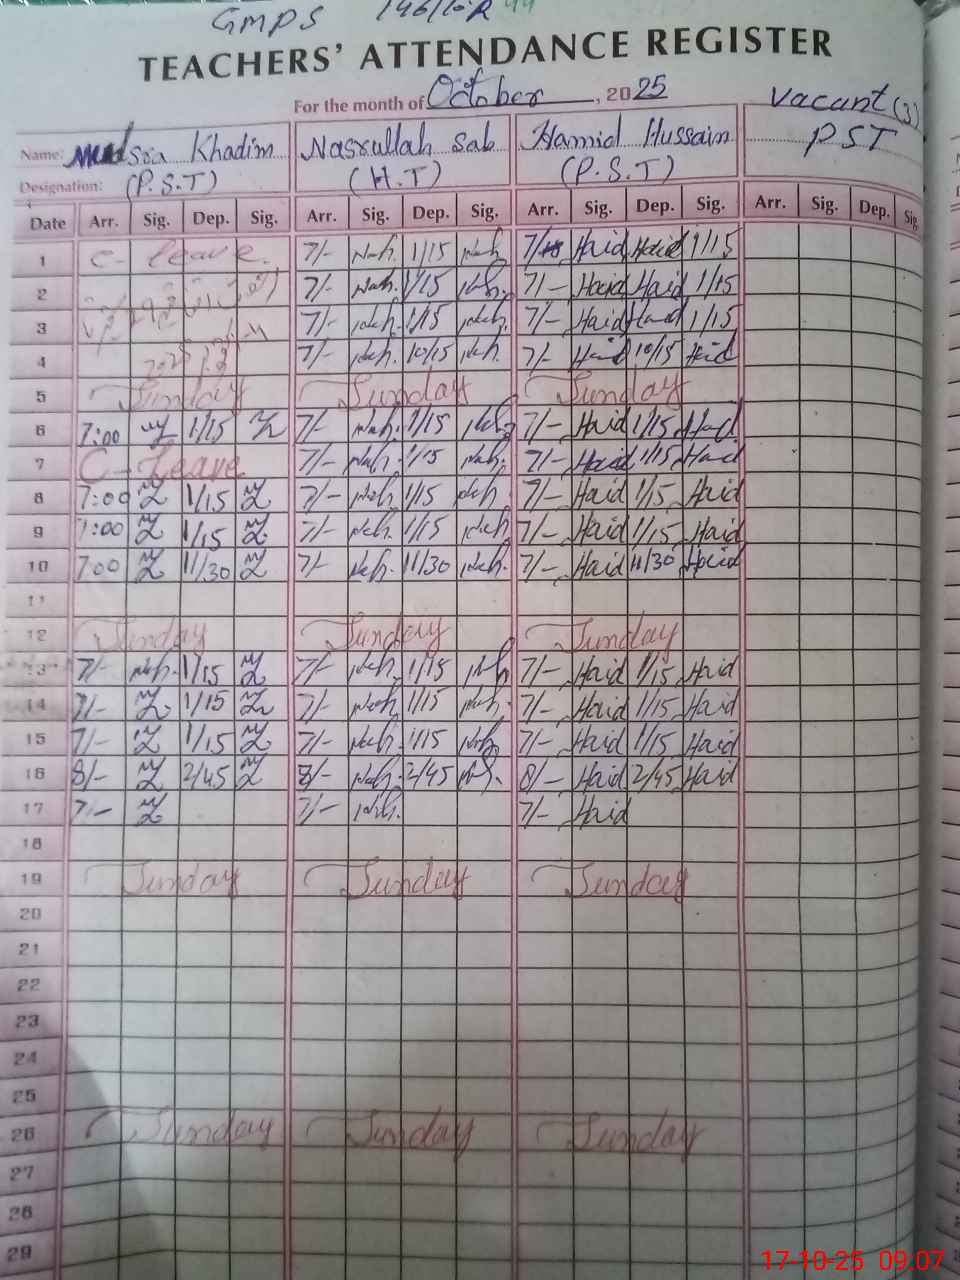 GMPS 146/10-R 44
TEACHERS' ATTENDANCE REGISTER
For the month of October, 2025
Vacant (3)
PST
Name: Khadim Nasrullah Sab Hamid Hussain
Designation: (P.S.T) (H.T) (P.S.T)
Date Arr. Sig. Dep. Sig. Arr. Sig. Dep. Sig. Arr. Sig. Dep. Sig. Arr. Sig. Dep. Sig.
1 C- leave. 7/- 1/15 Haid 1/15
2 7/- 1/15 7/- Haid Haid 1/15
3 7/- 1/15 7/- Haid Haid 1/15
4 7/- 10/15 7/- Haid 10/15 Haid
5 Sunday Sunday Sunday
6 7:00 1/15 7/- 1/15 7/- Haid 1/15 Haid
7 C- Leave 7/- 1/15 7/- Haid 1/15 Haid
8 7:00 1/15 7/- 1/15 7/- Haid 1/15 Haid
9 7:00 1/15 7/- 1/15 7/- Haid 1/15 Haid
10 7:00 11/30 7/- 11/30 7/- Haid 11/30 Haid
11
12 Sunday Sunday Sunday
13 7/- 1/15 7/- 1/15 7/- Haid 1/15 Haid
14 7/- 1/15 7/- 1/15 7/- Haid 1/15 Haid
15 7/- 1/15 7/- 1/15 7/- Haid 1/15 Haid
16 8/- 2/45 8/- 2/45 8/- Haid 2/45 Haid
17 7/- 7/- 7/- Haid
18
19 Sunday Sunday Sunday
20
21
22
23
24
25
26 Sunday Sunday Sunday
27
28
29
17-10-25 09.07